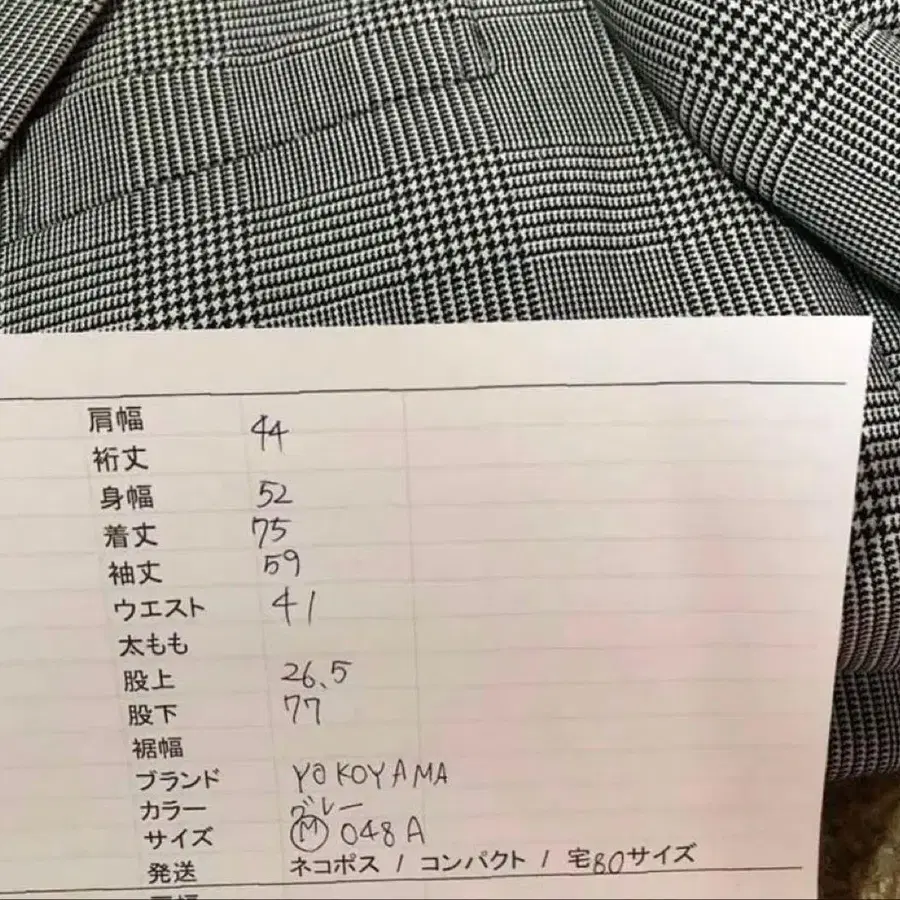 肩幅 44
裄丈
身幅 52
着丈 75
袖丈 59
ウエスト 41
太もも
股上 26.5
股下 77
裾幅
ブランド YOKOYAMA
カラー グレー
サイズ Ⓜ 048A
発送 ネコポス / コンパクト / 宅80サイズ